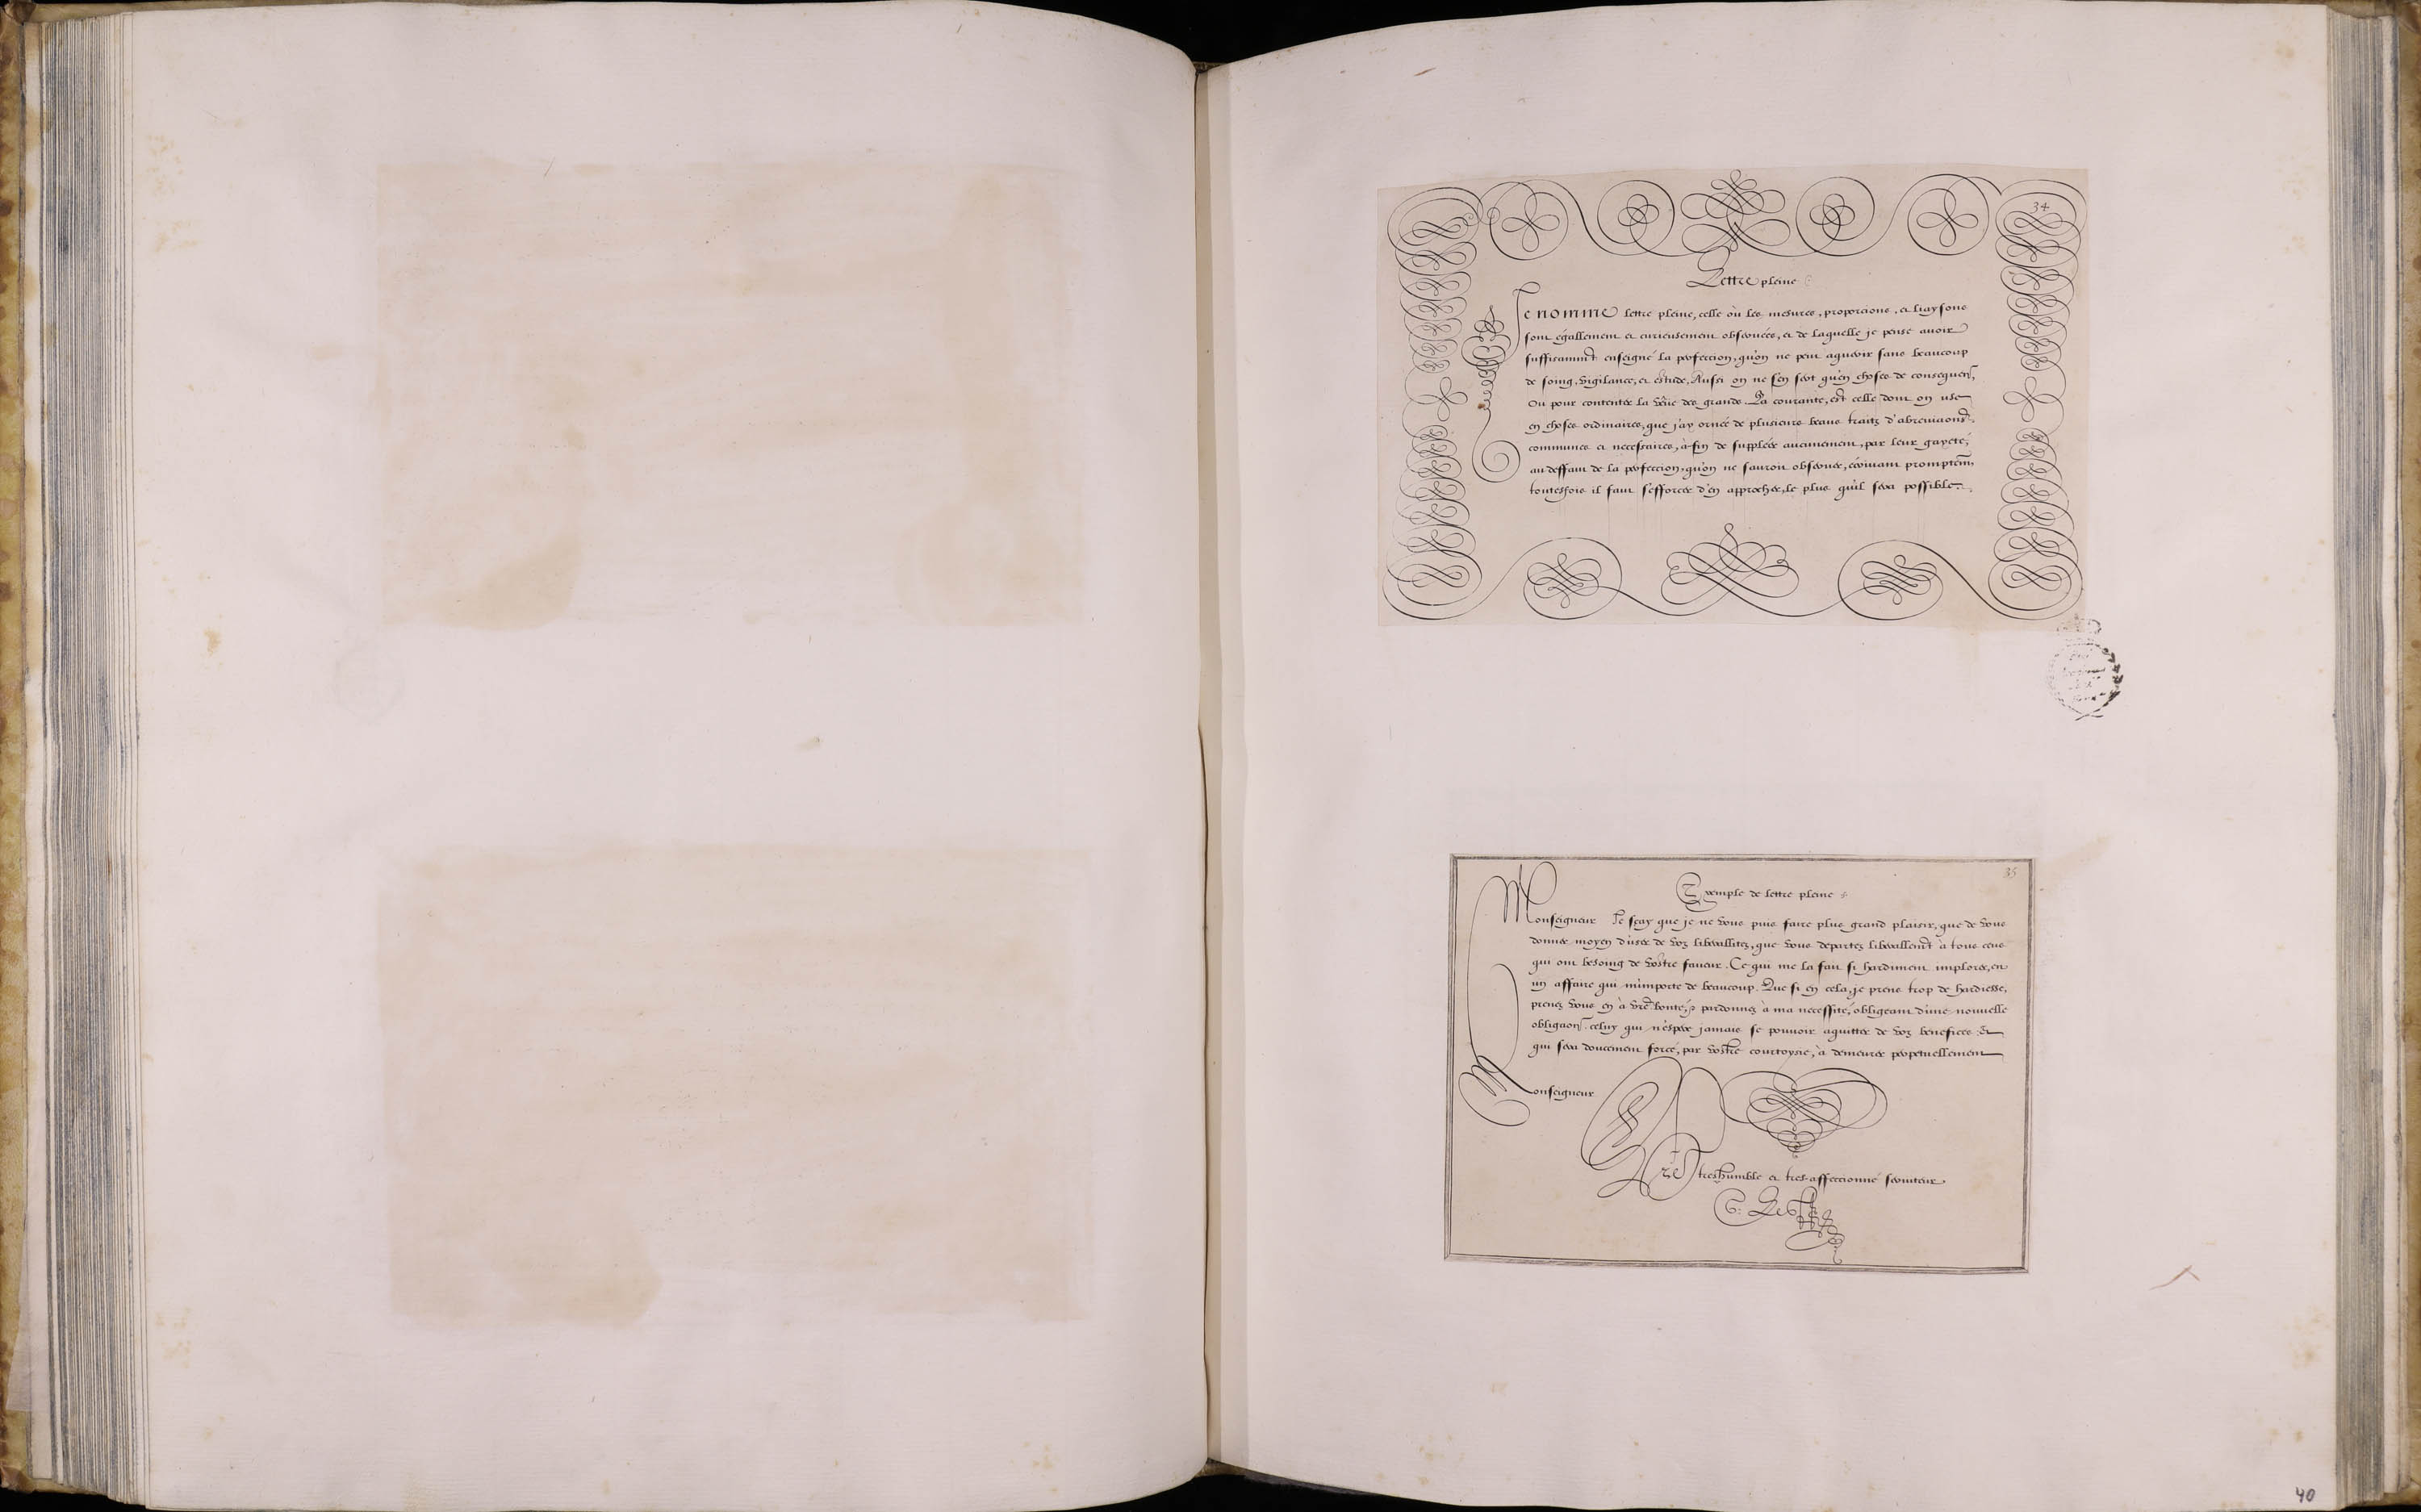 34
Lettre pleine
Je nomme lettre pleine, celle où les mesures, proporcions, et liaysons
sont égallement et curieusement observées, et de laquelle je pense avoir
suffisamm̃t enseigné la perfeccion, qu'on ne peut aquerir sans beaucoup
de soing, vigilance, et estude. Aussi on ne s'en sert qu'en choses de consequen͂,
Ou pour contenter la vëue des grands. La courante, est celle dont on use
en choses ordinaires, que j'ay ornée de plusieurs beaus traitz d'abreviaons,
communes et necessaires, à fin de suppléer aucunement, par leur gayeté,
au deffaut de la perfeccion, qu'on ne sauroit observer, écrivant promptem̃
toutesfois il faut s'efforcer d'en approcher, le plus qu'il sera possible.
35
Exemple de lettre pleine
Monseigneur Je sçay que je ne vous puis faire plus grand plaisir, que de vous
donner moyen d'user de voz liberallitez, que vous departez liberallem̃t à tous ceus
qui ont besoing de vostre faveur. Ce qui me la fait si hardiment implorer, en
un affaire qui m'importe de beaucoup. Que si en cela, je prens trop de hardiesse,
prenez vous en à vr̃e bonté, & pardonnez à ma necessité, obligeant d'une nouvelle
obligaon̄ celuy qui n'espere jamais se pouvoir aquitter de voz benefices. Et
qui sera doucement forcé, par vostre courtoysie, à demeurer perpetuellement
Monseigneur
Vr̃e treshumble et tres-affeccionné serviteur
40